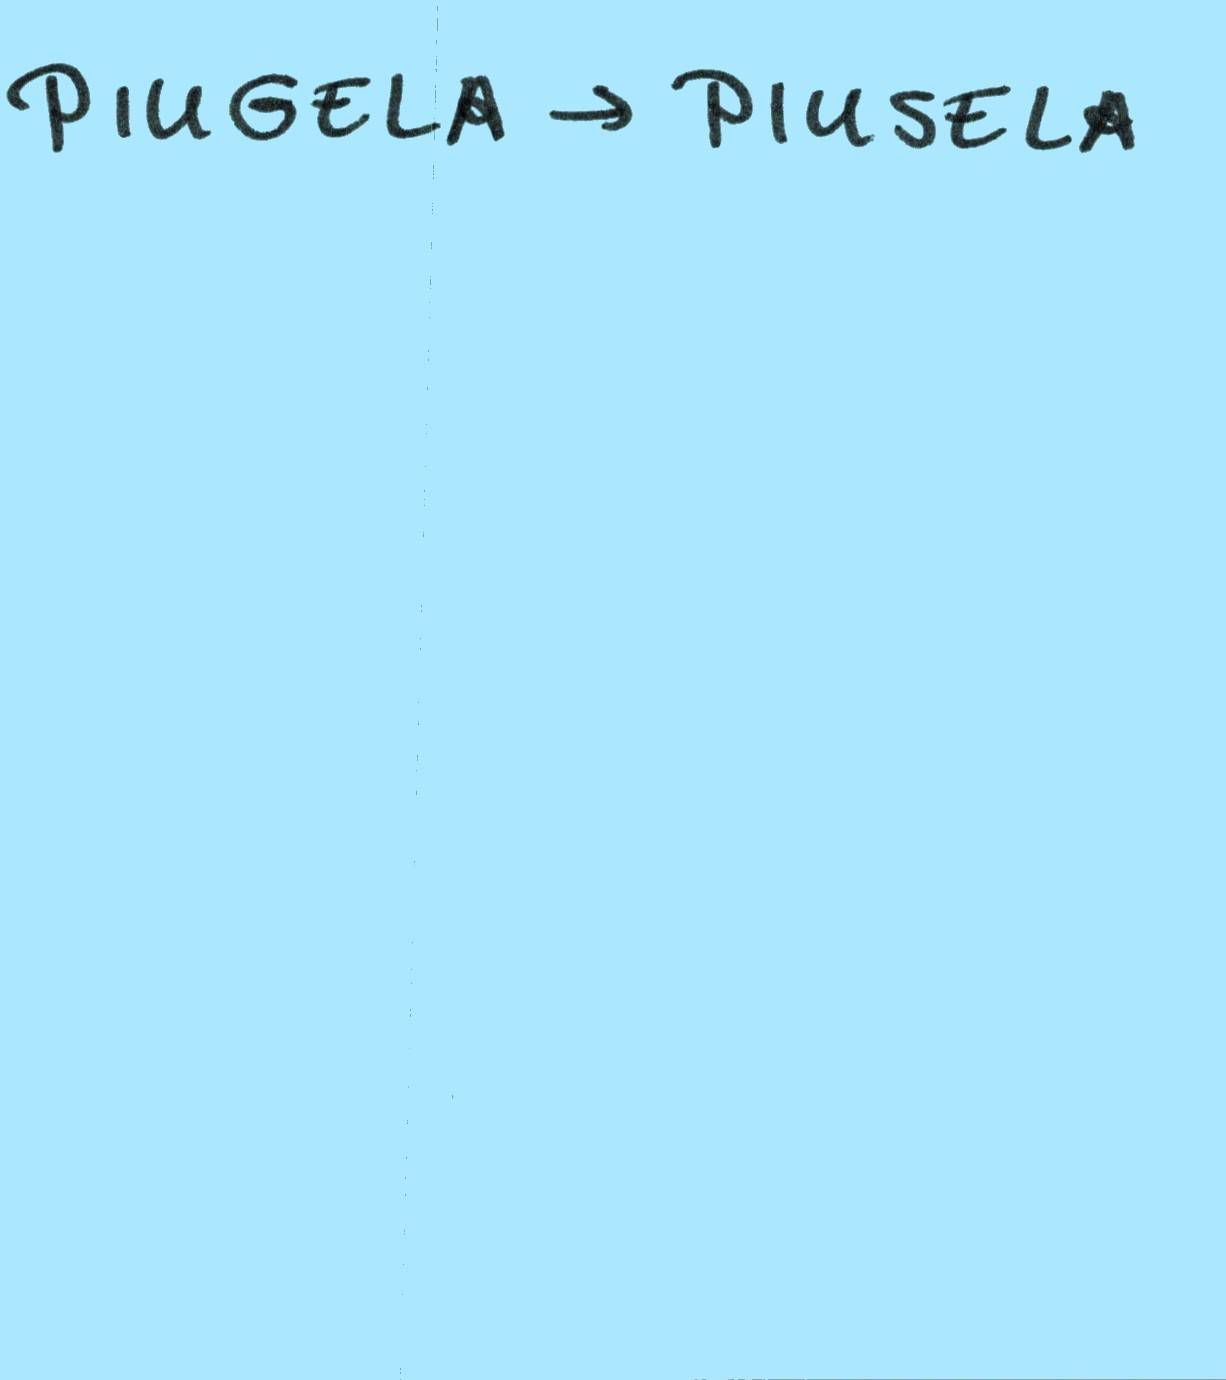 PIUGELA → PIUSELA